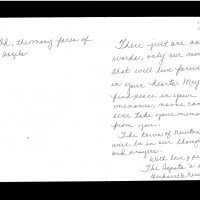 Oh, the many faces of
angels
There just are no
words, only our mem
that will live forever
in your hearts. May
find peace in your
memories, no one can
ever take your memor
from you.
The town of Newtow
will be in our thought
and prayers.
With love &
The
Hicksville, New